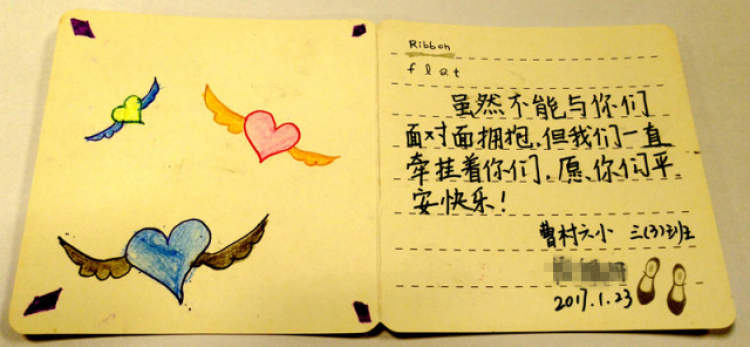 Ribbon
flat
虽然不能与你们
面对面拥抱,但我们一直
牵挂着你们,愿你们平
安快乐!
曹村六小 三(3)班
2017.1.23